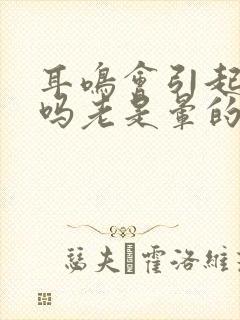 耳鳴會引起
吗老是暈的
瑟夫 霍洛維